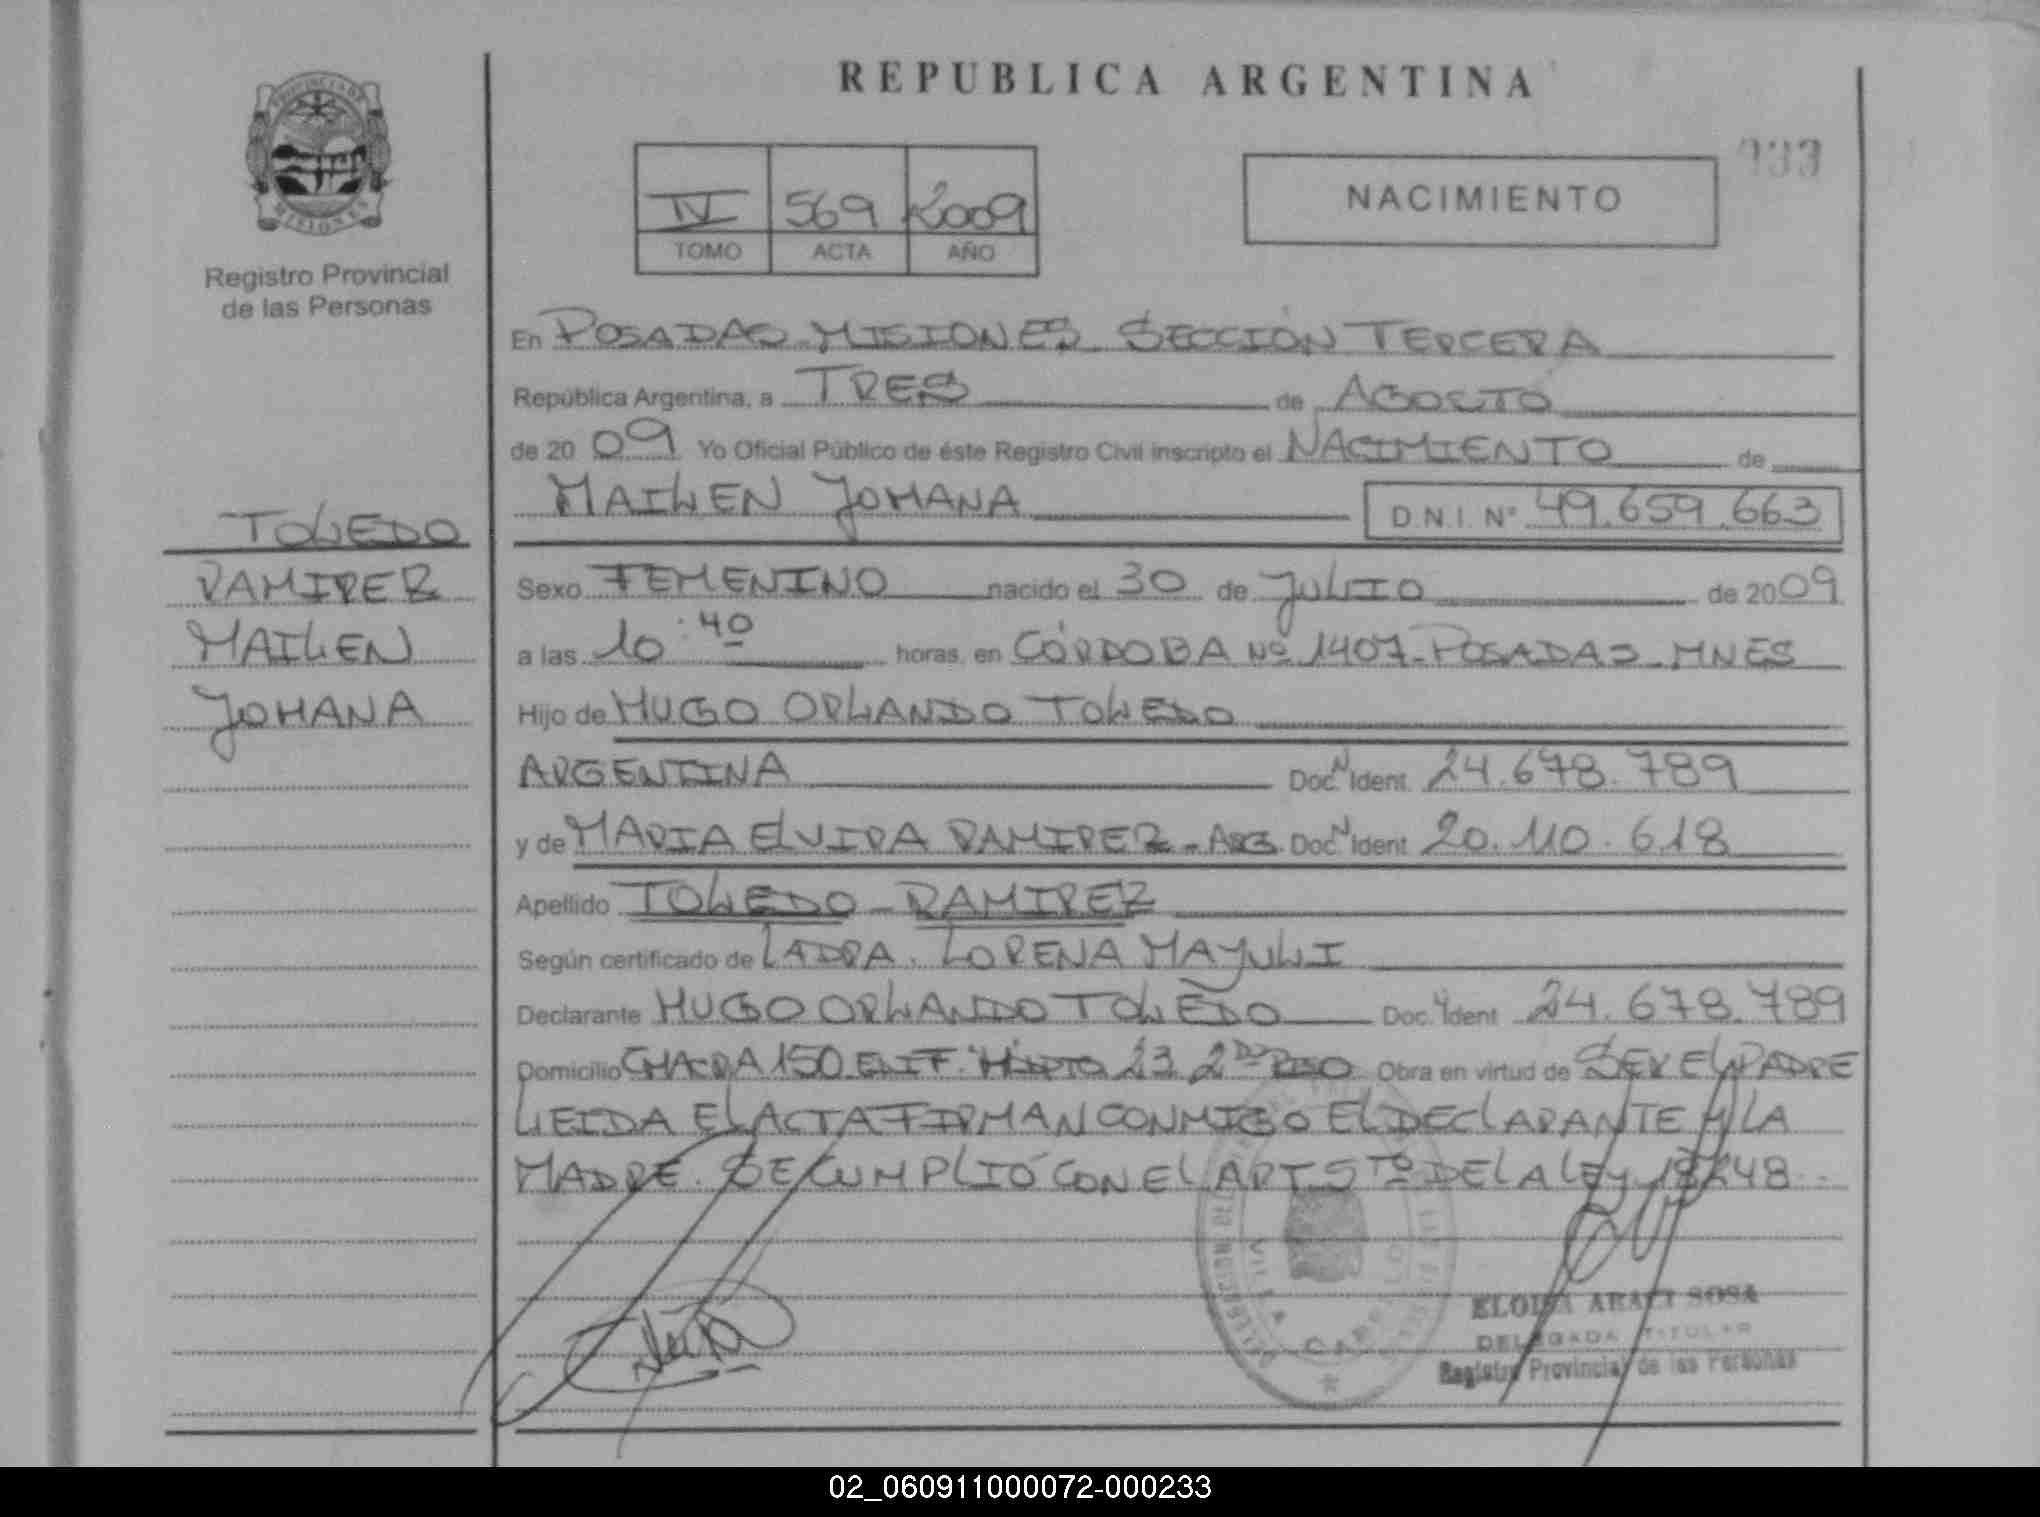 REPUBLICA ARGENTINA
PROVINCIA DE
MISIONES
Registro Provincial
de las Personas
IV 569 2009
TOMO ACTA AÑO
NACIMIENTO
En POSADAS-MISIONES-SECCIÓN TERCERA
República Argentina, a TRES de AGOSTO
de 20 09 Yo Oficial Público de éste Registro Civil inscripto el NACIMIENTO de
MAILEN JOHANA D.N.I. Nº 49.659.663
TOLEDO
RAMIREZ
MAILEN
JOHANA
Sexo FEMENINO nacido el 30 de JULIO de 2009
a las 10:40 horas, en CÓRDOBA Nº 1407-POSADAS-MNES
Hijo de HUGO ORLANDO TOLEDO
ARGENTINA Doc. N Ident. 24.678.789
y de MARIA ELVIRA RAMIREZ-ARG. Doc. N Ident 20.110.618
Apellido TOLEDO-RAMIREZ
Según certificado de LA DRA. LORENA MAYULI
Declarante HUGO ORLANDO TOLEDO Doc. Ident 24.678.789
Domicilio CHACRA 150 EDIF. 23 2DO PISO Obra en virtud de SER EL PADRE
LEIDA EL ACTA FIRMAN CONMIGO EL DECLARANTE Y LA
MADRE. SE CUMPLIÓ CON EL ART 5TO DE LA LEY 18248
VILLA CABELLO
ELOISA ARACI SOSA
DELEGADA TITULAR
Registro Provincial de las Personas
02_060911000072-000233